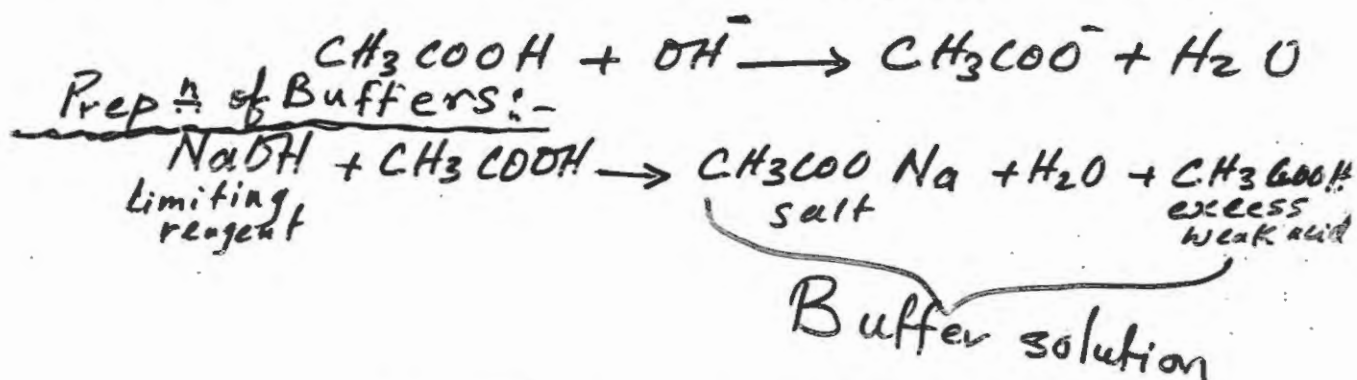 CH3COOH + OH⁻ ⟶ CH3COO⁻ + H2O
Prepn of Buffers:-
NaOH + CH3COOH ⟶ CH3COO Na + H2O + CH3COOH
limiting reagent salt excess weak acid
Buffer solution